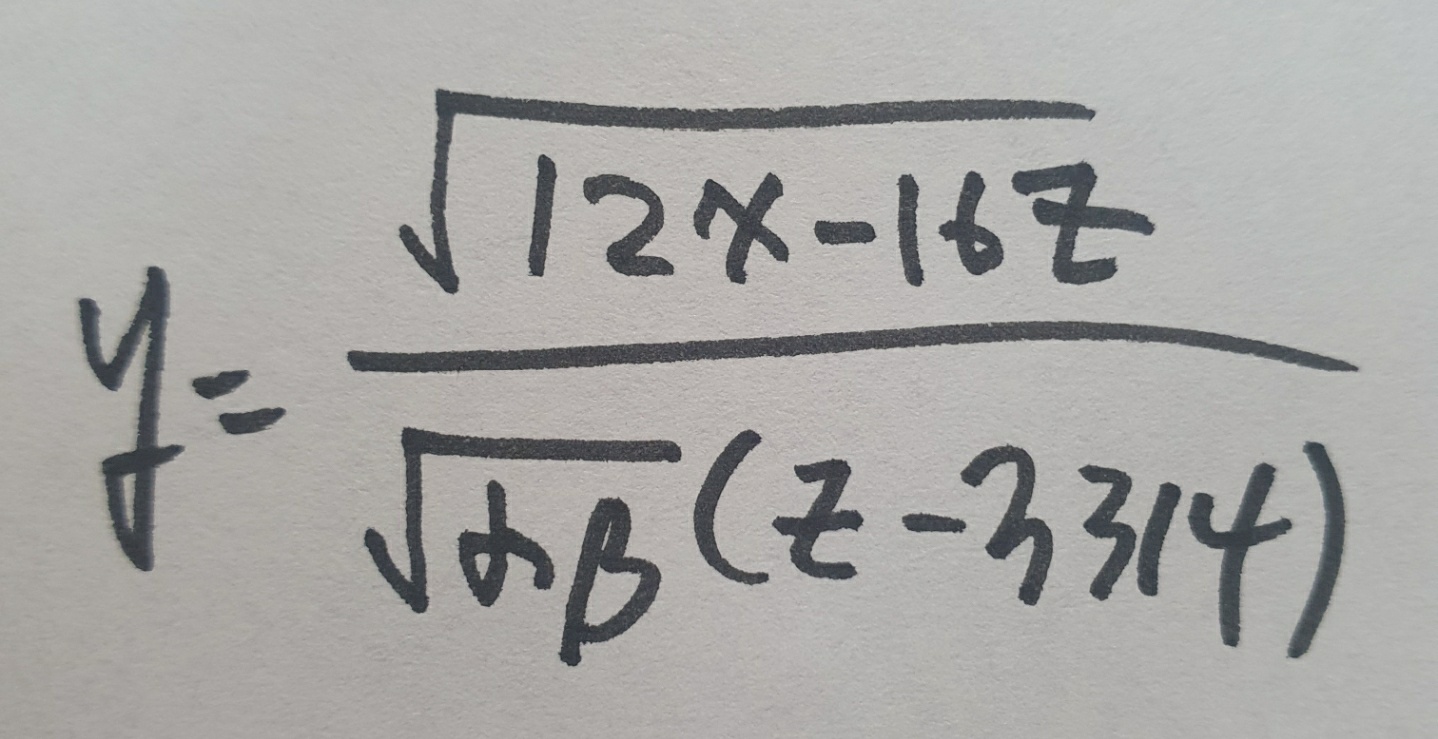 y = √(12x - 16z) / (√(αβ) (z - 3314))